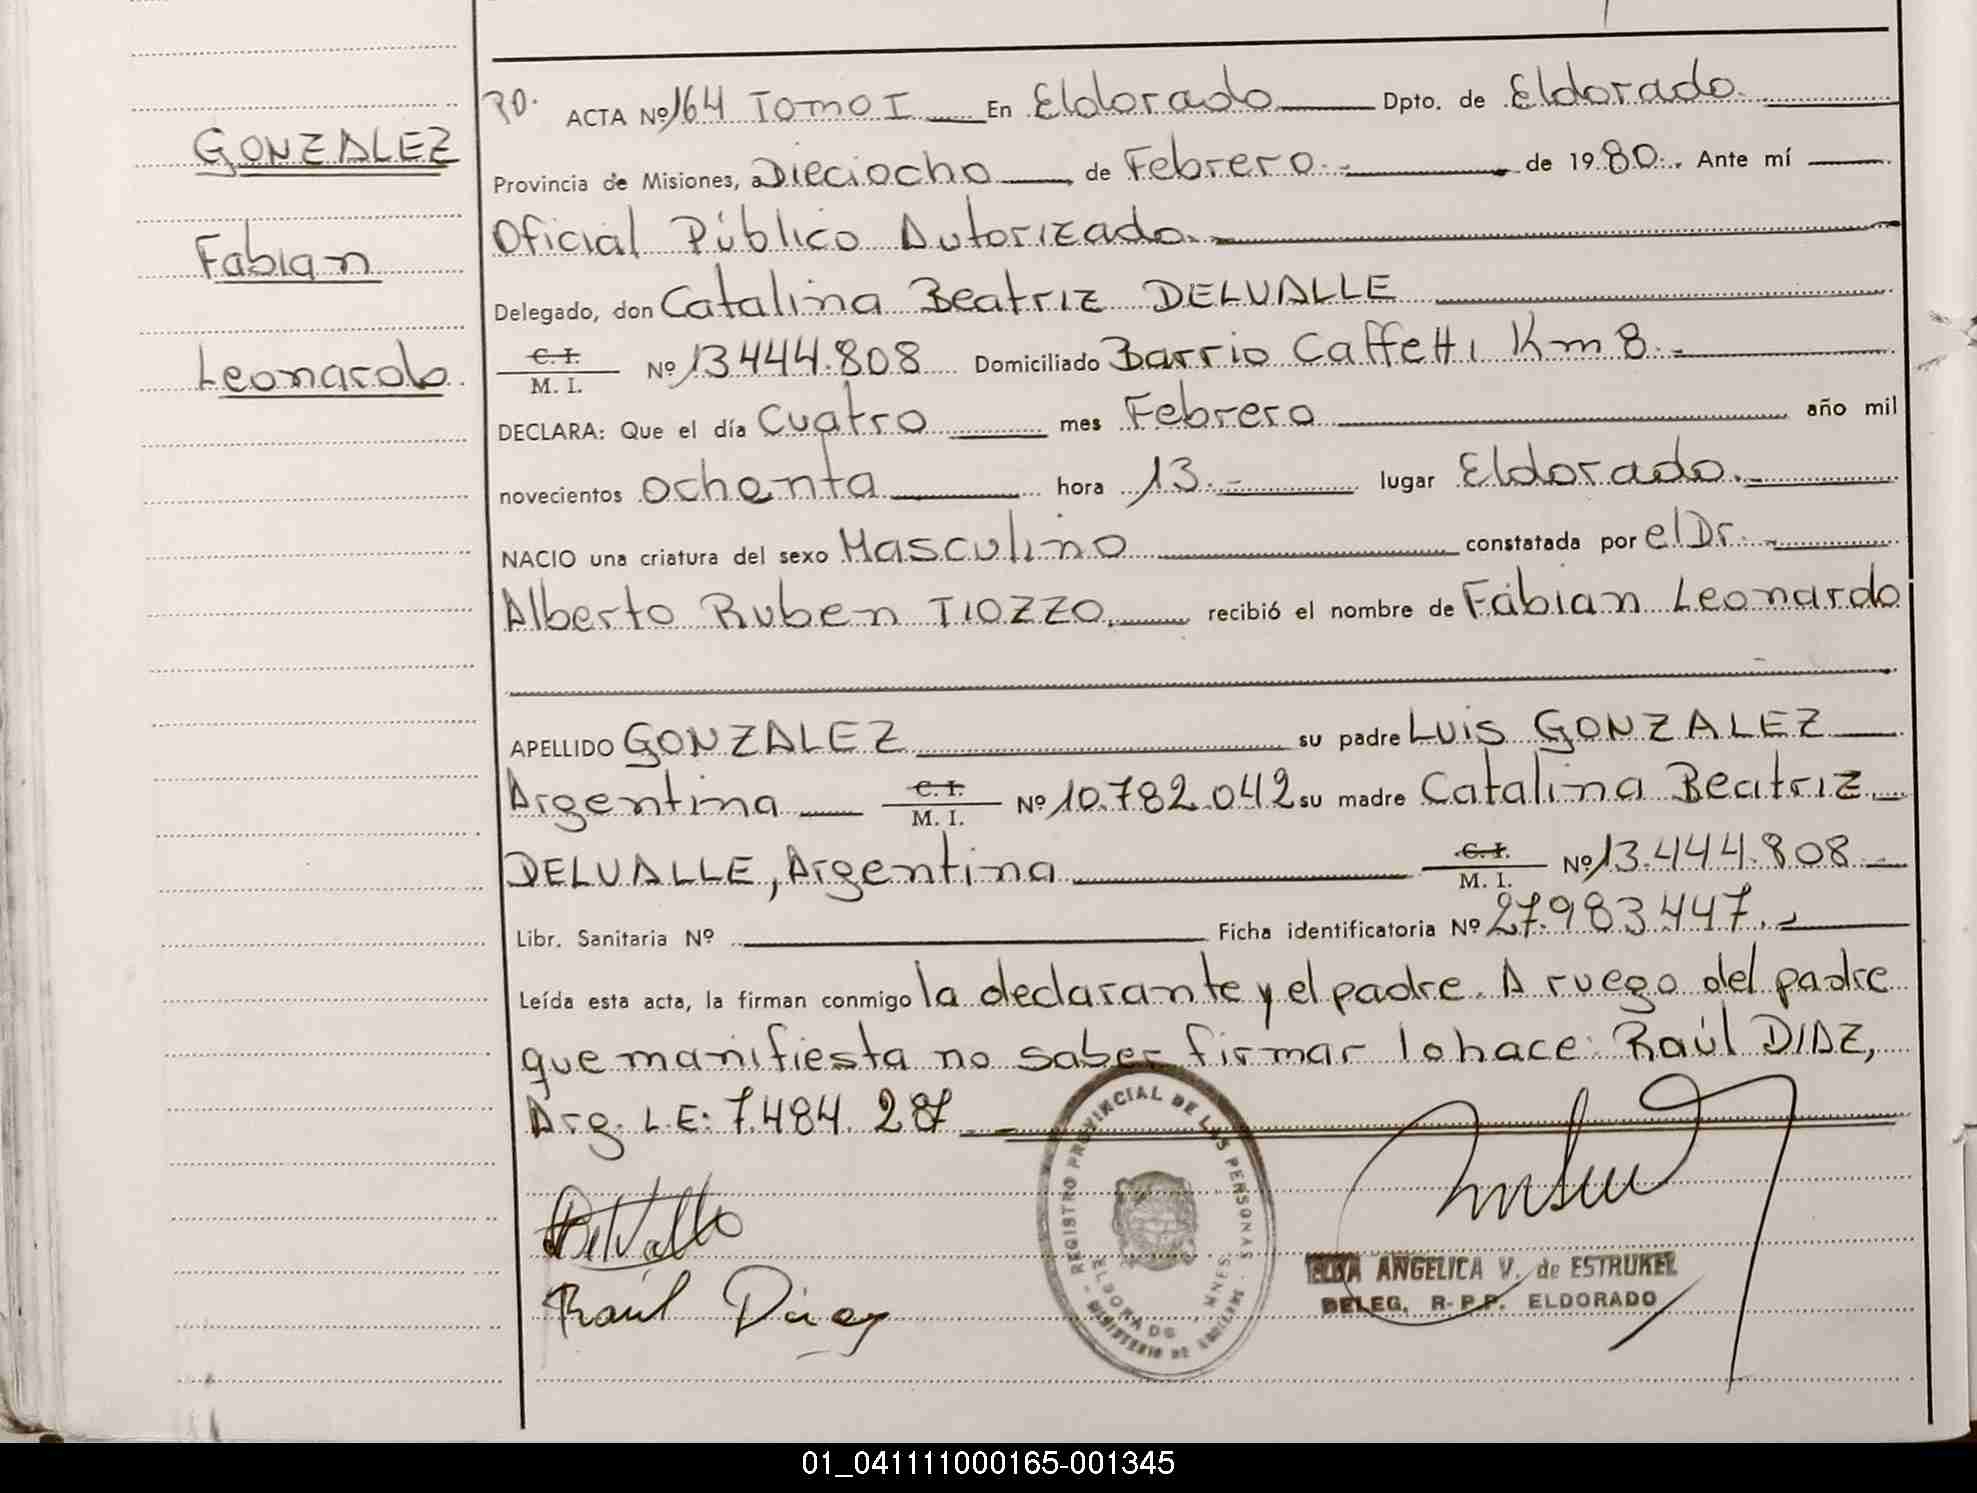 GONZALEZ
Fabian
Leonardo.
PD. ACTA Nº 164 Tomo I En Eldorado Dpto. de Eldorado.
Provincia de Misiones, a Dieciocho de Febrero.- de 1980.. Ante mí
Oficial Público Autorizado.
Delegado, don Catalina Beatriz DELVALLE
C. I.
M. I. Nº 13444.808 Domiciliado Barrio Caffetti Km 8.-
DECLARA: Que el día Cuatro mes Febrero año mil
novecientos ochenta hora 13.- lugar Eldorado.
NACIO una criatura del sexo Masculino constatada por el Dr.-
Alberto Ruben TIOZZO, recibió el nombre de Fabian Leonardo
APELLIDO GONZALEZ su padre Luis GONZALEZ
Argentina C. I.
M. I. Nº 10.782.042 su madre Catalina Beatriz
DELVALLE, Argentina C. I.
M. I. Nº 13.444.808
Libr. Sanitaria Nº Ficha identificatoria Nº 27.983.447.-
Leída esta acta, la firman conmigo la declarante y el padre. A ruego del padre
que manifiesta no saber firmar lo hace: Raúl DIAZ,
Arg. L.E: 7.484.287
DelValle
Raúl Diaz
REGISTRO PROVINCIAL DE LAS PERSONAS
ELDORADO MNES.
MINISTERIO DE GOBIERNO
ELBA ANGELICA V. de ESTRUKEL
DELEG. R-P.P. ELDORADO
01_041111000165-001345